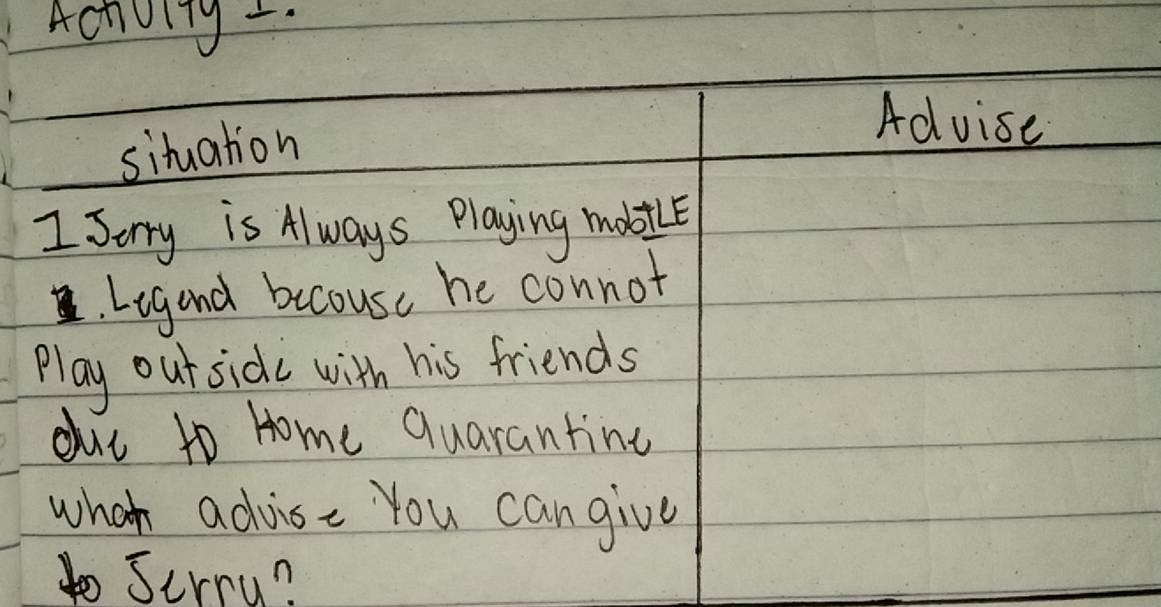 Activity I.
situation
Advise
I Jerry is Always Playing mobiLE
. Legend becouse he connot
Play outside with his friends
due to Home Quarantine
what advise You can give
to Jerry?